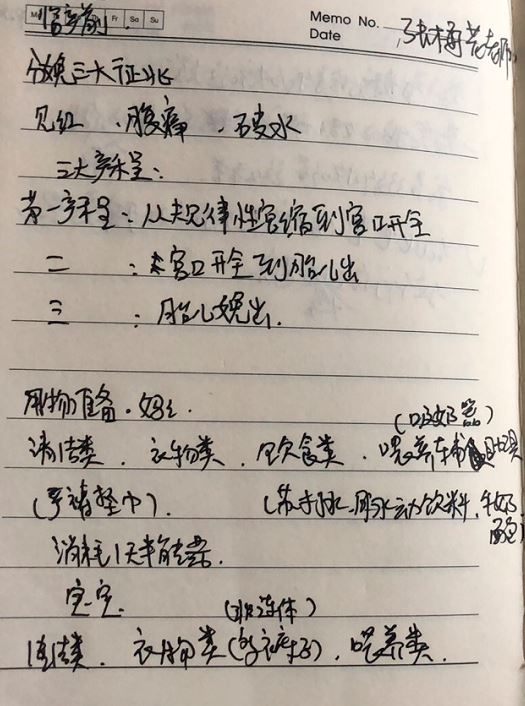 临产前 Fr Sa Su Memo No.
Date
分娩三大征兆
见红、腹痛、破水
三大产程:
第一产程:从规律性宫缩到宫口开全
二 :宫口开全到胎儿出
三 :胎儿娩出.
用物准备.妈妈
(吸奶器)
清洁类、衣物类、饮食类、喂养辅助
(产褥垫巾).
饮料、牛奶
面包)
消耗1天半能量.
宝宝
(非连体)
清洁类、衣物类(包衣裤子)、喂养类.